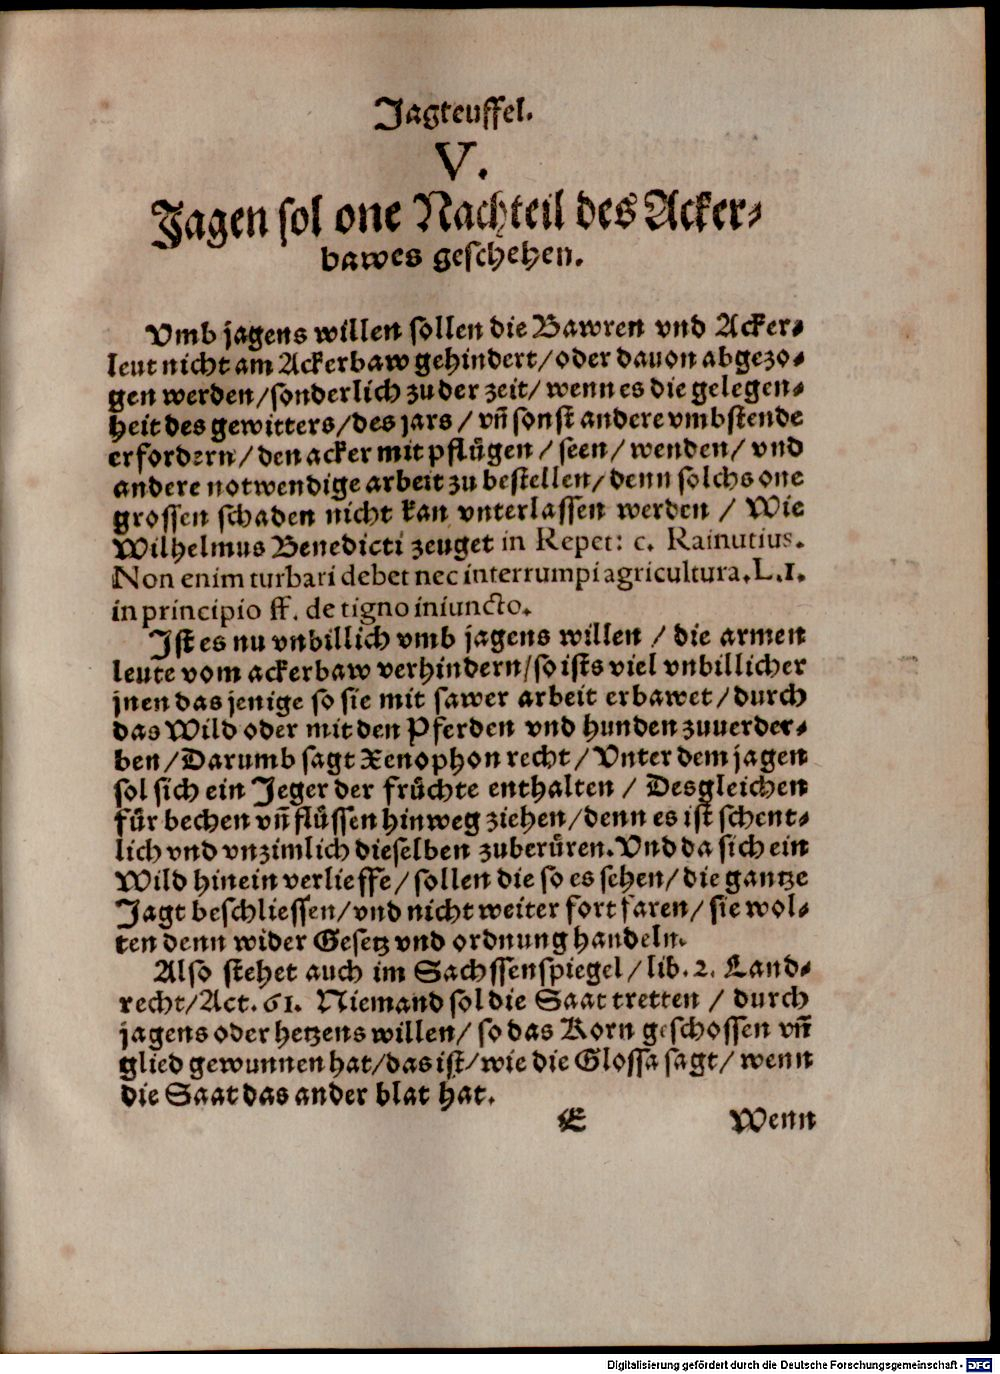 Jagteuffel.
V.
Jagen sol one Nachteil des Acker⸗
bawes geschehen.
Vmb jagens willen sollen die Bawren vnd Acker⸗
leut nicht am Ackerbaw gehindert/oder dauon abgezo⸗
gen werden/sonderlich zu der zeit/ wenn es die gelegen⸗
heit des gewitters/des jars / vñ sonst andere vmbstende
erfordern/ den acker mit pflügen / seen/ wenden/ vnd
andere notwendige arbeit zu bestellen/ denn solchs one
grossen schaden nicht kan vnterlassen werden / Wie
Wilhelmus Benedicti zeuget in Repet: c. Rainutius.
Non enim turbari debet nec interrumpi agricultura. L.1.
in principio ff. de tigno iniuncto.
Ist es nu vnbillich vmb jagens willen / die armen
leute vom ackerbaw verhindern/so ists viel vnbillicher
jnen das jenige so sie mit sawer arbeit erbawet/ durch
das Wild oder mit den Pferden vnd hunden zuuerder⸗
ben/Darumb sagt Xenophon recht/ Vnter dem jagen
sol sich ein Jeger der früchte enthalten / Desgleichen
für bechen vñ flüssen hinweg ziehen/denn es ist schent⸗
lich vnd vnzimlich dieselben zuberüren. Vnd da sich ein
Wild hinein verlieffe/ sollen die so es sehen/ die gantze
Jagt beschliessen/vnd nicht weiter fort faren/ sie wol⸗
ten denn wider Gesetz vnd ordnung handeln.
Also stehet auch im Sachssenspiegel/ lib. 2. Land⸗
recht/Act. 61. Niemand sol die Saat tretten / durch
jagens oder hetzens willen/ so das Korn geschossen vñ
glied gewunnen hat/das ist/ wie die Glossa sagt/ wenn
die Saat das ander blat hat.
E Wenn
Digitalisierung gefördert durch die Deutsche Forschungsgemeinschaft - DFG